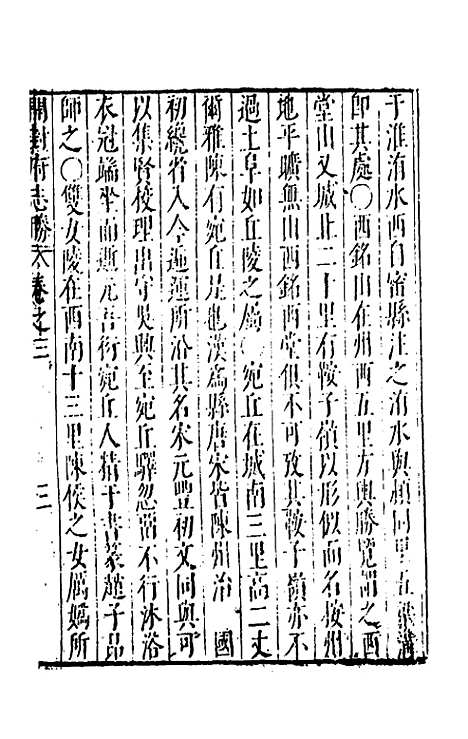 于淮洧水西自密縣注之洧水與潁同里五梁溝
即其處○西銘山在州西五里方輿勝覽謂之西
堂山又城北二十里有鞍子嶺以形似而名按州
地平曠無山西銘西堂俱不可攷其鞍子嶺亦不
過土阜如丘陵之屬 宛丘在城南三里高二丈
爾雅陳有宛丘是也漢為縣唐宋皆陳州治 國
初縂省入今蓮蓮所沿其名宋元豐初文同與可
以集賢校理出守吳興至宛丘驛忽留不行沐浴
衣冠端坐而逝元吾衍宛丘人精于書篆趙子昂
師之○雙女陵在西南十三里陳侯之女厲媯所
開封府志勝 卷之三
三